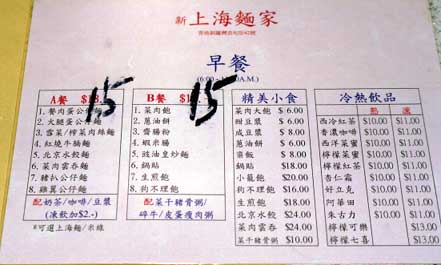 新上海麵家
早餐
(6:00 A.M.)
A餐 $18.
15
1. 餐肉蛋公仔麵
2. 火腿蛋公仔麵
3. 雪菜/榨菜肉絲麵
4. 紅燒牛腩麵
5. 北京水餃麵
6. 菜肉雲吞麵
7. 豬扒公仔麵
8. 雞翼公仔麵
配奶茶/咖啡/豆漿
(凍飲加$2.-)
*可選上海麵/米線
B餐 $1
15
1. 菜肉飽
2. 蔥油餅
3. 齋腸粉
4. 蝦米腸
5. 豉油皇炒麵
6. 鍋貼
7. 生煎飽
8. 狗不理飽
配菜干豬骨粥/
碎牛/皮蛋瘦肉粥
精美小食
菜肉大飽 $ 6.00
甜豆漿 $ 6.00
咸豆漿 $ 8.00
蔥油餅 $ 6.00
粢飯 $ 8.00
鍋貼 $18.00
小籠飽 $20.00
狗不理飽 $16.00
生煎飽 $18.00
北京水餃 $24.00
菜肉雲吞 $24.00
菜干豬骨粥 $10.00
冷熱飲品
熱 凍
西冷紅茶 $10.00 $11.00
香濃咖啡 $10.00 $11.00
西洋菜蜜 $10.00 $11.00
檸檬菜蜜 $10.00 $11.00
檸檬紅茶 $10.00 $11.00
杏仁霜 $10.00 $11.00
好立克 $10.00 $11.00
阿華田 $10.00 $11.00
朱古力 $10.00 $11.00
檸檬可樂 $13.00
檸檬七喜 $13.00